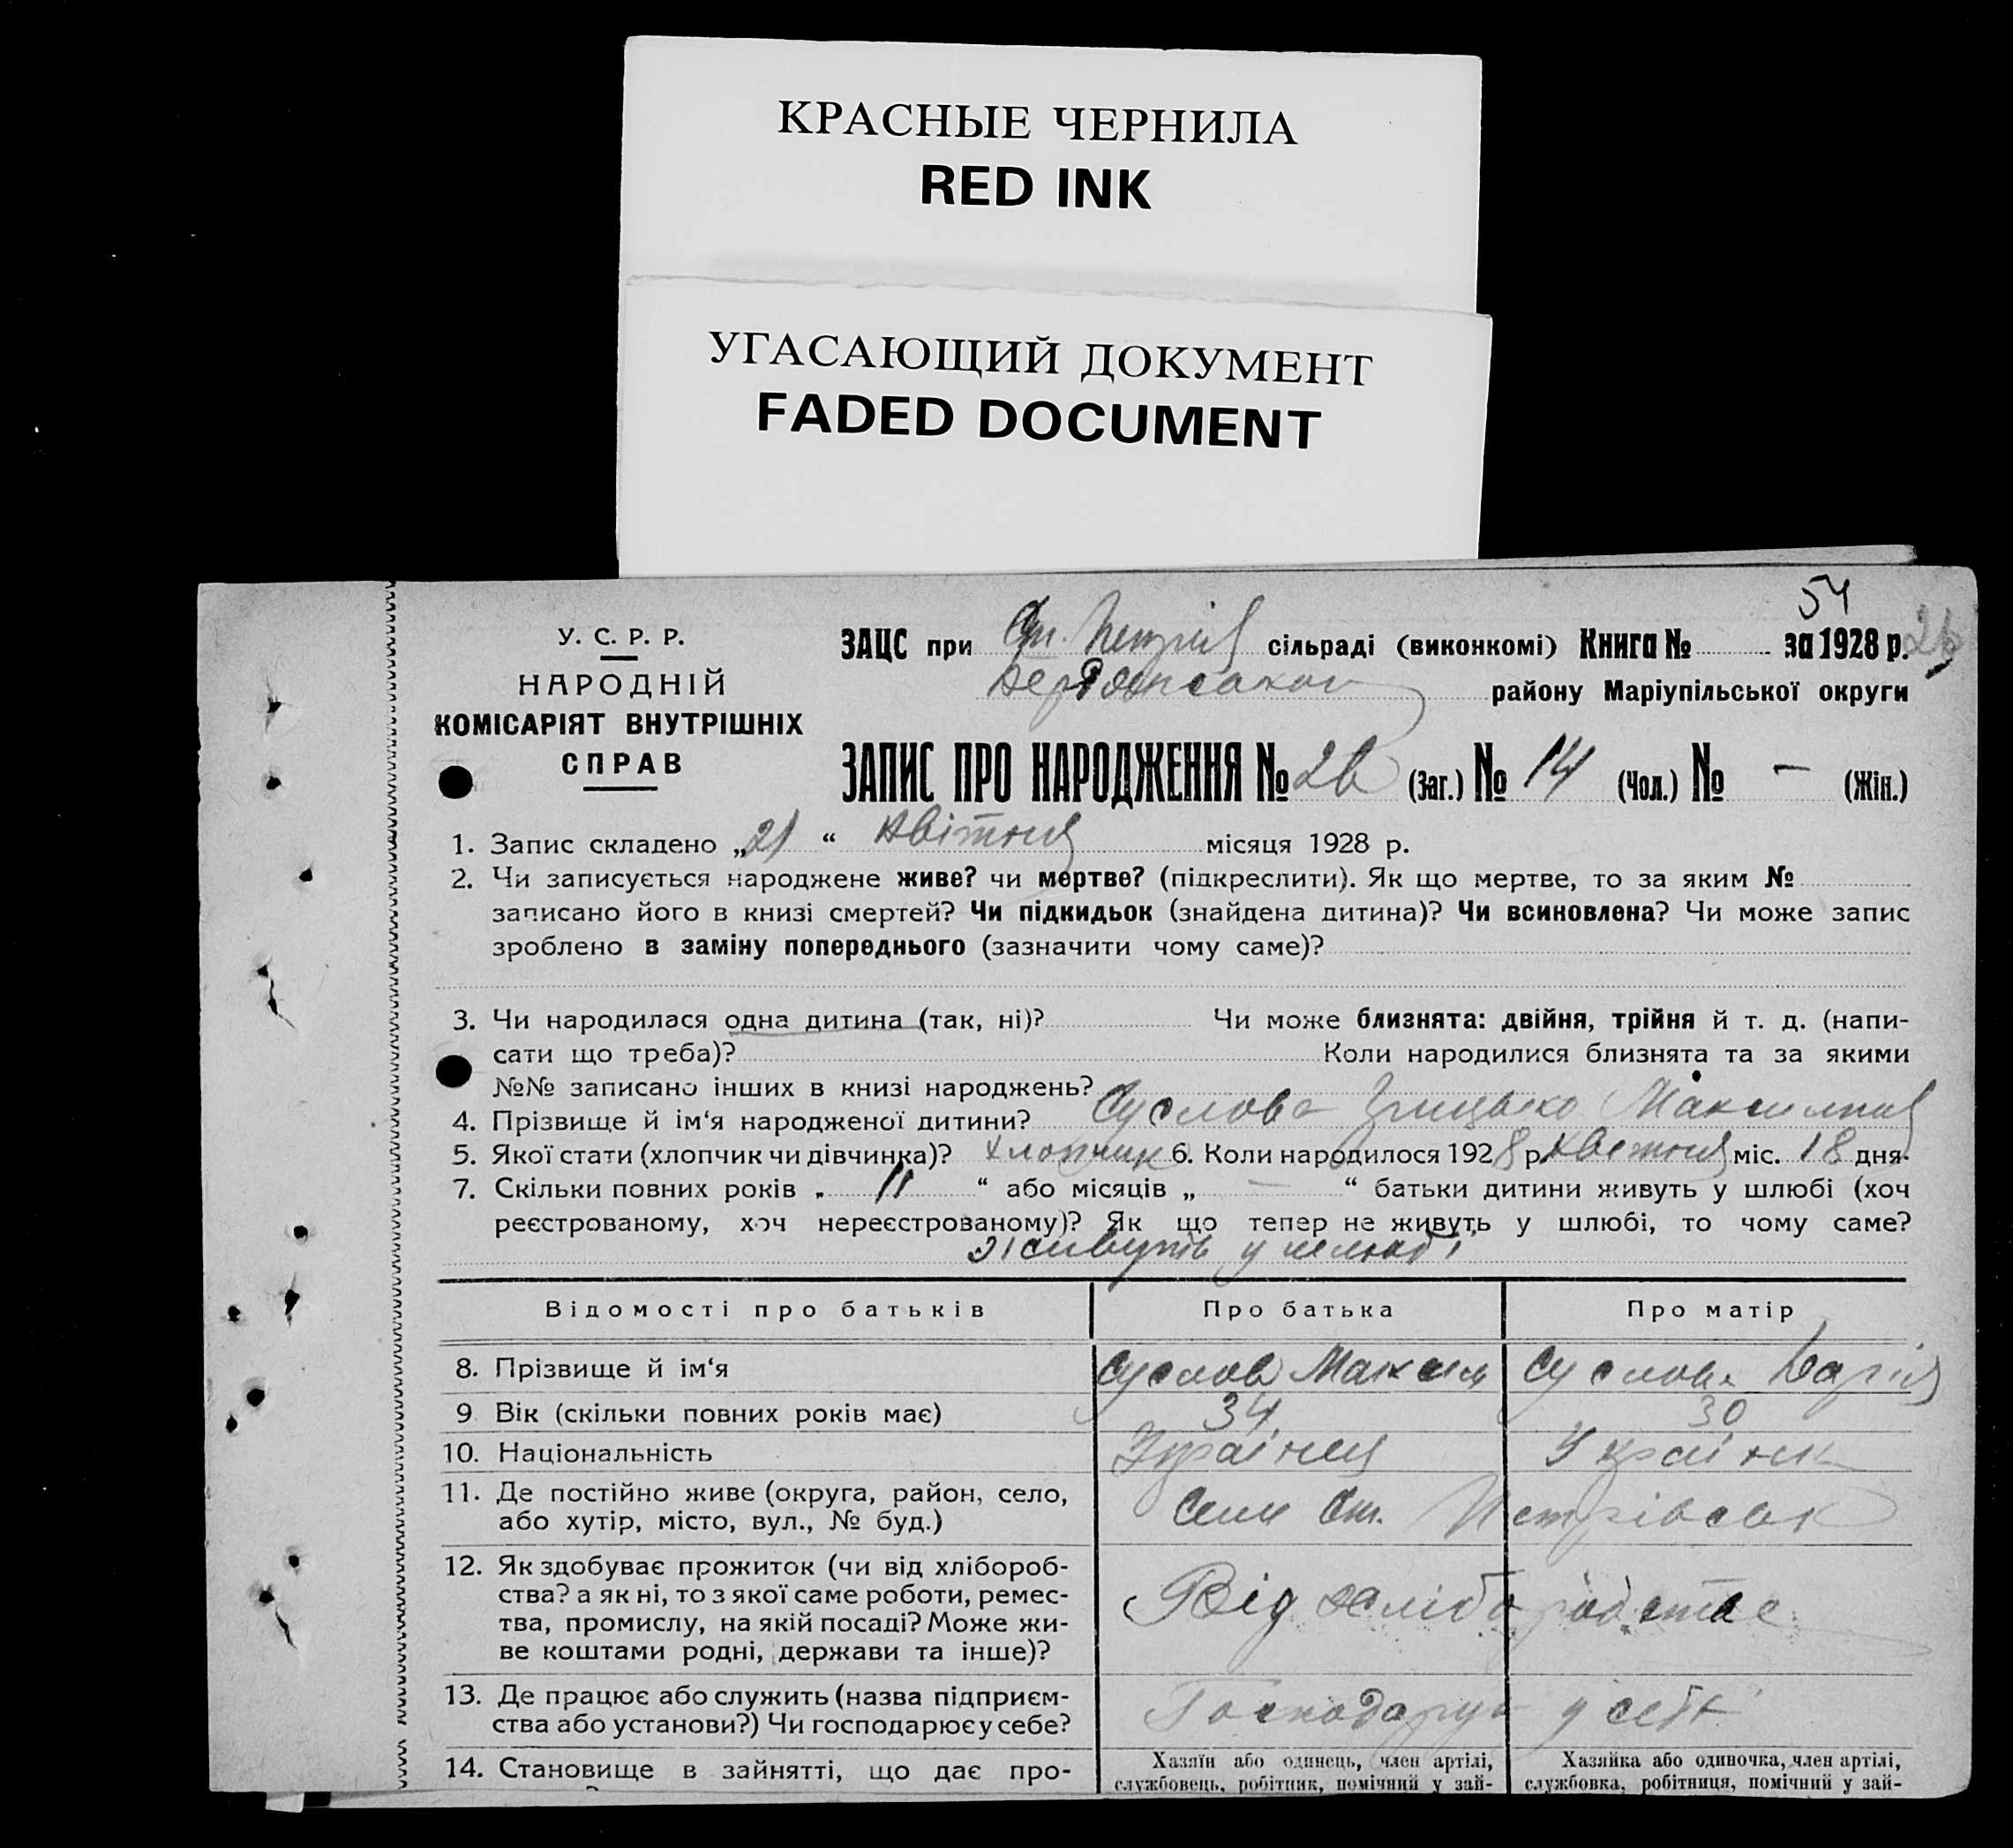 КРАСНЫЕ ЧЕРНИЛА
RED INK
УГАСАЮЩИЙ ДОКУМЕНТ
FADED DOCUMENT
54
У. С. Р. Р.
НАРОДНІЙ
КОМІСАРІЯТ ВНУТРІШНІХ
СПРАВ
ЗАЦС при Ст. сільраді (виконкомі) Книга № за 1928 р. 26
району Маріупільської округи
ЗАПИС ПРО НАРОДЖЕННЯ № 26 (Заг.) № 14 (Чол.) № — (Жін.)
1. Запис складено „21“ Квітня місяця 1928 р.
2. Чи записується народжене живе? чи мертве? (підкреслити). Як що мертве, то за яким №
записано його в книзі смертей? Чи підкидьок (знайдена дитина)? Чи всиновлена? Чи може запис
зроблено в заміну попереднього (зазначити чому саме)?
3. Чи народилася одна дитина (так, ні)? Чи може близнята: двійня, трійня й т. д. (напи-
сати що треба)? Коли народилися близнята та за якими
№№ записано інших в книзі народжень?
4. Прізвище й ім‘я народженої дитини? Суслова Грицько
5. Якої стати (хлопчик чи дівчинка)? Хлопчик 6. Коли народилось 1928 р. Квітня міс. 18 дня.
7. Скільки повних років „ 11 “ або місяців „ — “ батьки дитини живуть у шлюбі (хоч
реєстрованому, хоч нереєстрованому)? Як що тепер не живуть у шлюбі, то чому саме?
живуть у шлюбі
Відомості про батьків Про батька Про матір
8. Прізвище й ім‘я Суслов Максим Суслова Дарія
9 Вік (скільки повних років має) 34 30
10. Національність Українец Українка
11. Де постійно живе (округа, район, село,
або хутір, місто, вул., № буд.) Село Ст. Петрівськ
12. Як здобуває прожиток (чи від хлібороб-
ства? а як ні, то з якої саме роботи, ремес-
тва, промислу, на якій посаді? Може жи-
ве коштами родні, держави та інше)? Від хліборобства
13. Де працює або служить (назва підприєм-
ства або установи?) Чи господарює у себе? Господарує у себе
14. Становище в зайнятті, що дає про-
Хазяїн або одинець, член артілі,
службовець, робітник, помічний у зай-
Хазяйка або одиночка, член артілі,
службовка, робітниця, помічний у зай-